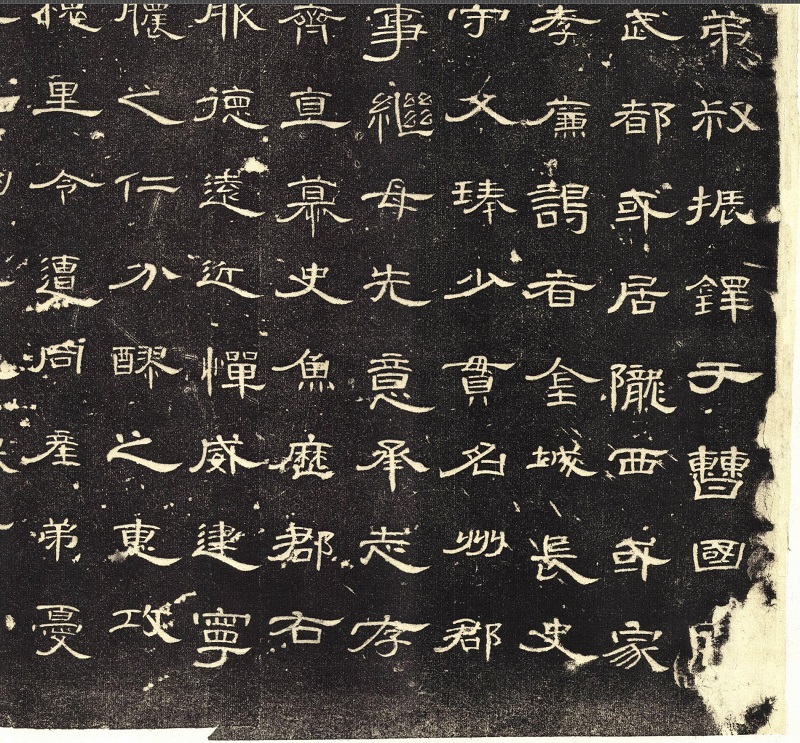 弟叔振鐸于曹國
武都或居隴西或家
孝廉謁者金城長史
守父琫少貫名州郡
事繼母先意承志存
齊直慕史魚歷郡右
服德遠近憚威建寧
膿之仁分醪之惠攻
槐里令遭同產弟憂